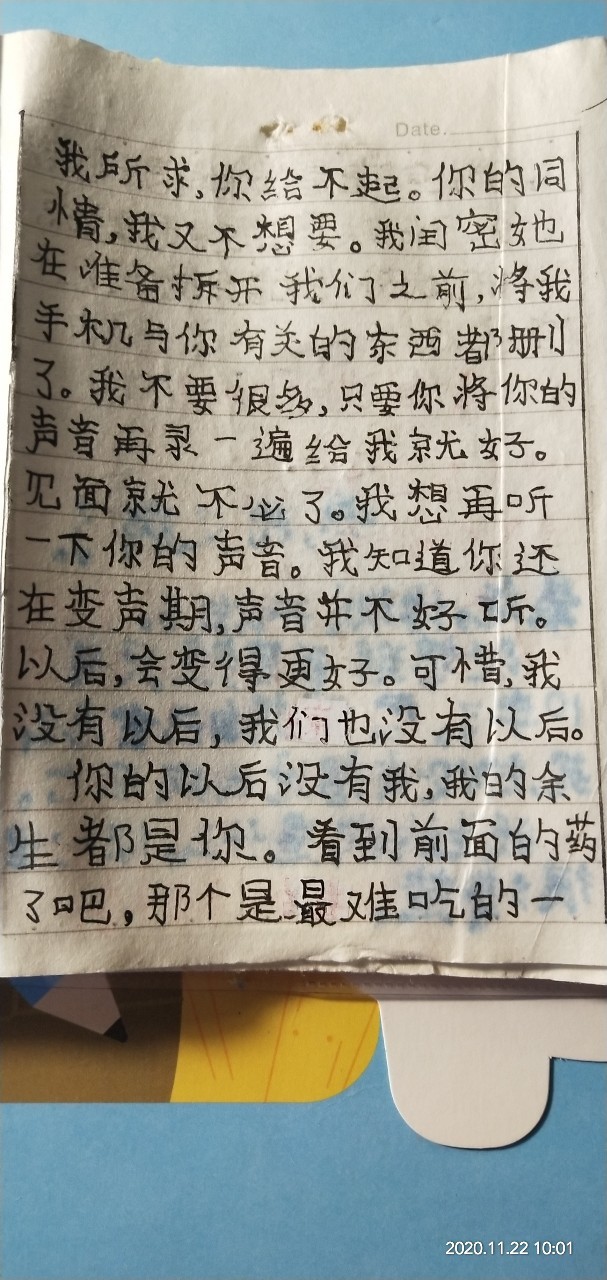 Date.
我所求，你给不起。你的同
情，我又不想要。我闺密她
在准备拆开我们之前，将我
手机与你有关的东西都删
了。我不要很多，只要你将你的
声音再录一遍给我就好。
见面就不必了。我想再听
一下你的声音。我知道你还
在变声期，声音并不好听。
以后，会变得更好。可惜，我
没有以后，我们也没有以后。
你的以后没有我，我的余
生都是你。看到前面的药
了吧，那个是最难吃的一
2020.11.22 10:01